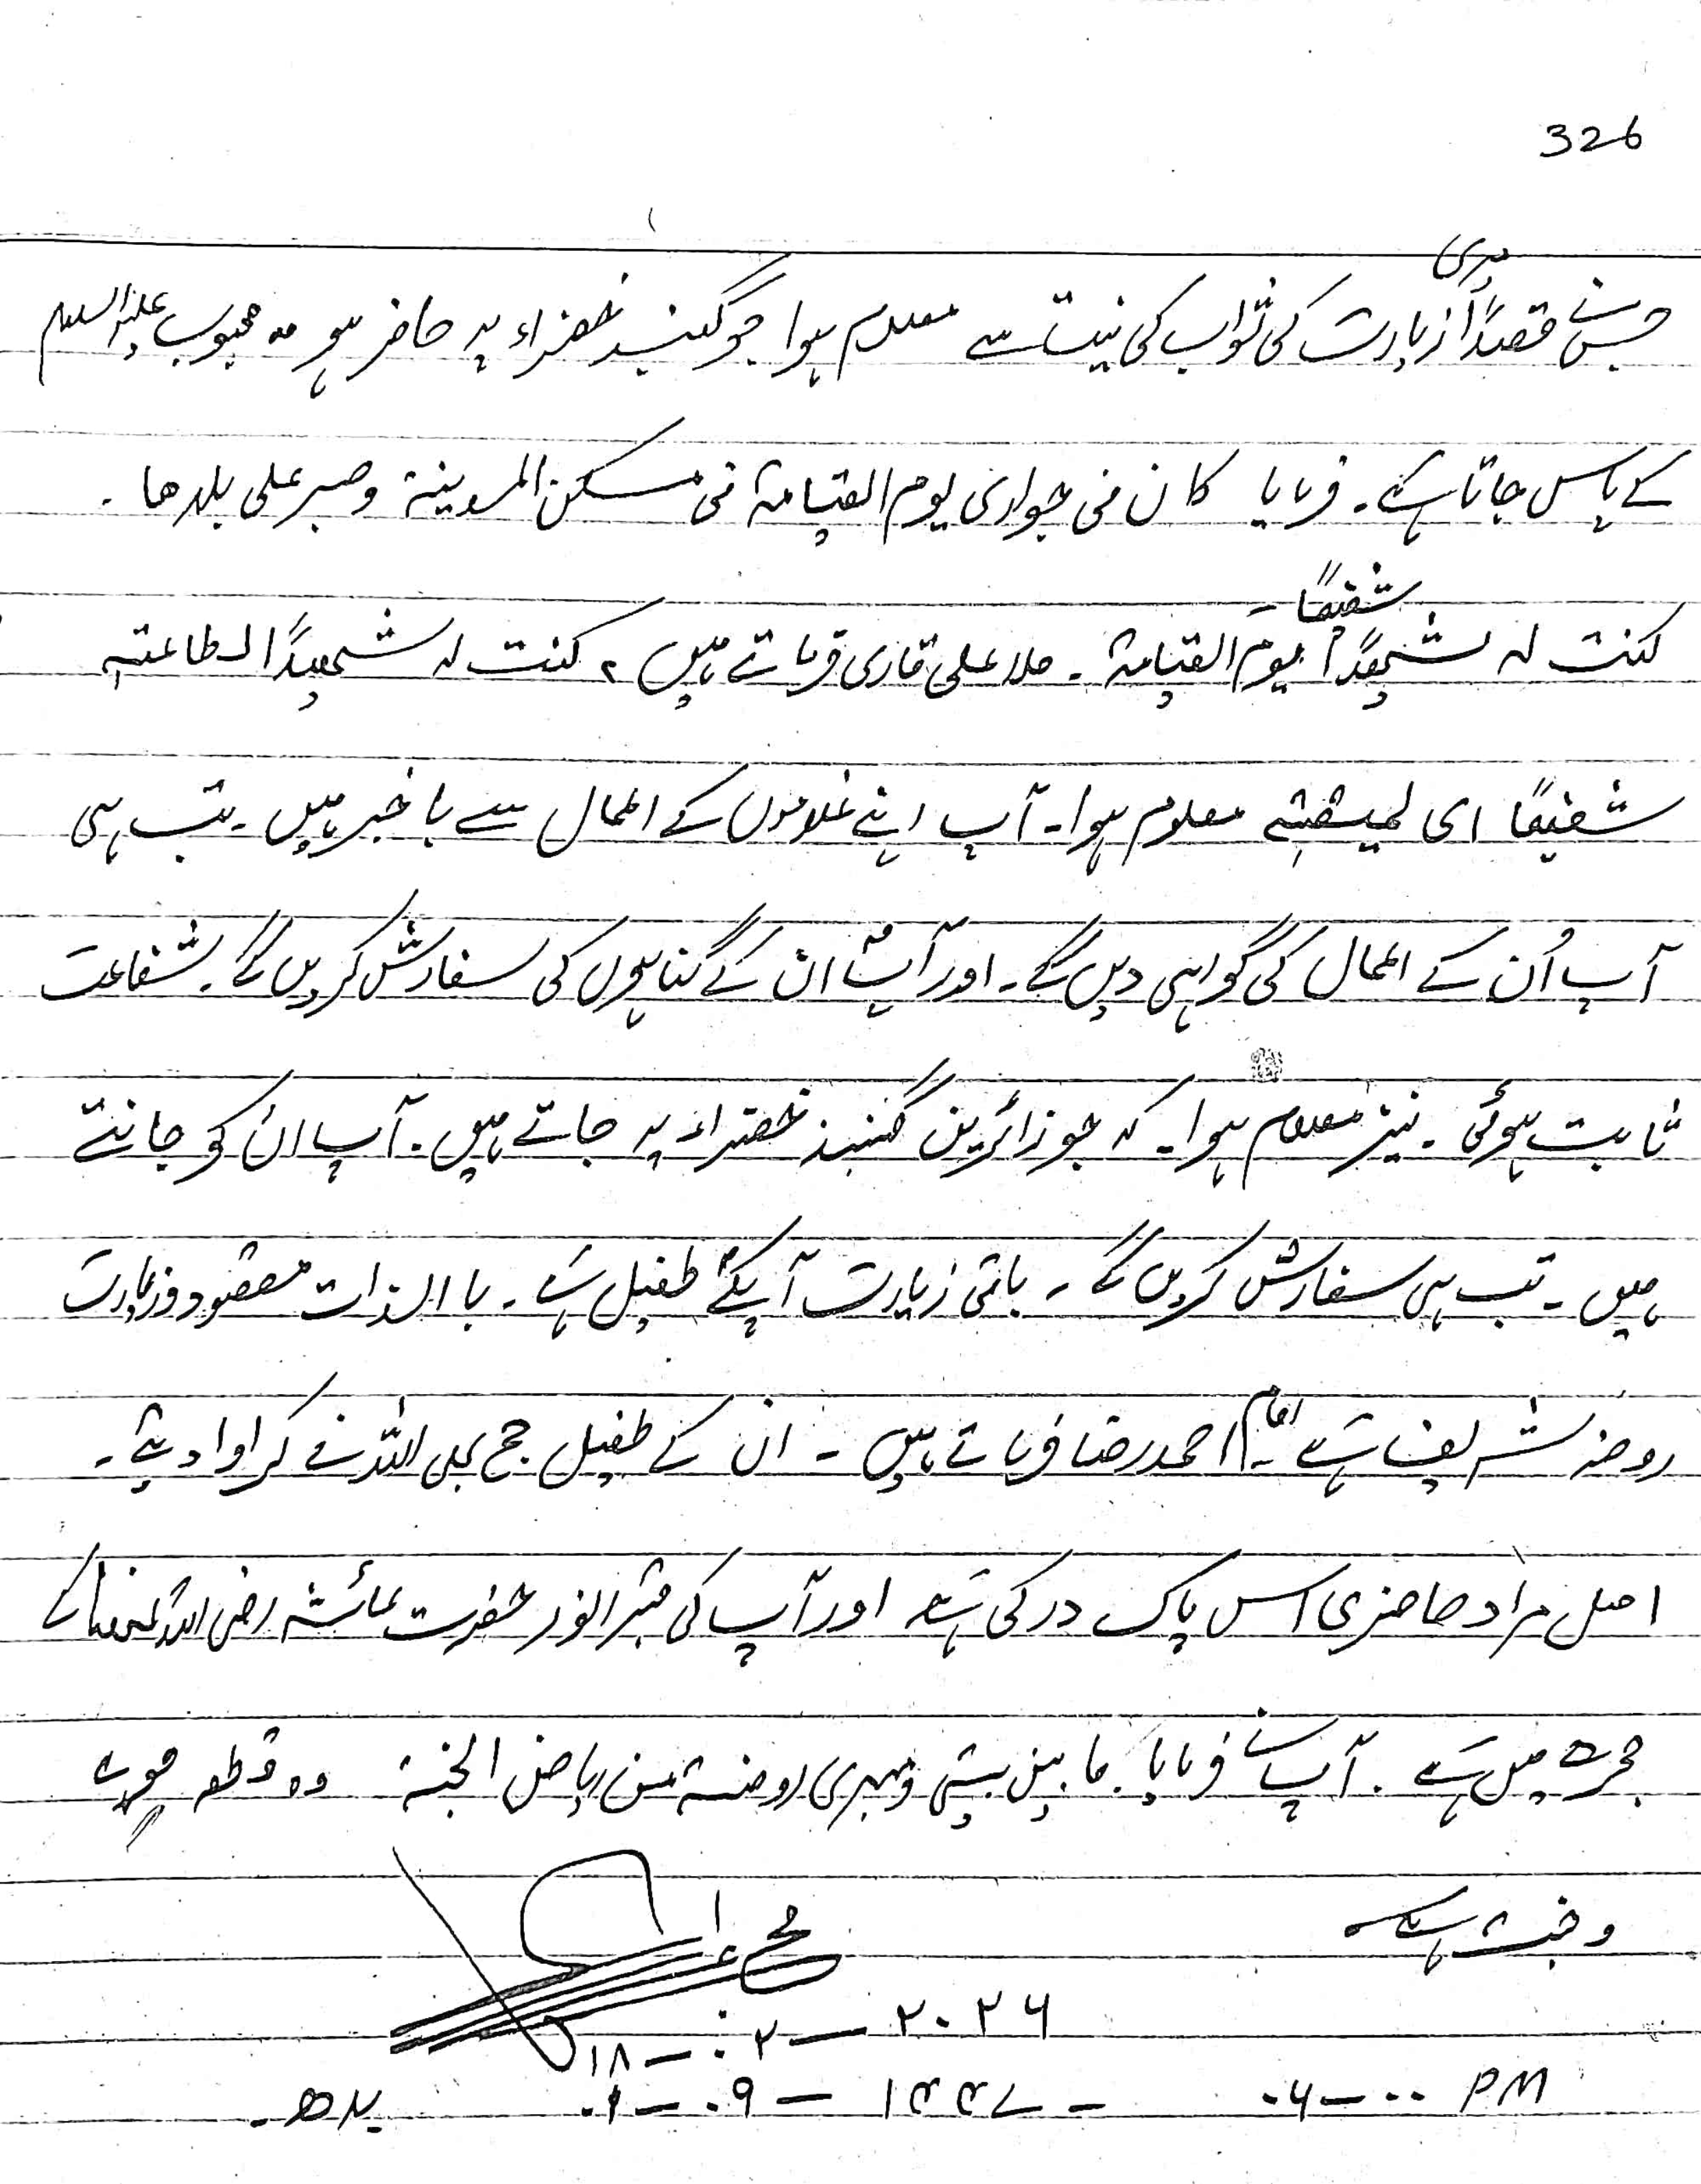 326
جس نے قصداً میری زیارت کی ثواب کی نیت سے معلوم ہوا جو گنبد خضراء پہ حاضر ہو وہ محبوب علیہ السلام
کے پاس جاتا ہے۔ فرمایا کان فی جواری یوم القیامۃ فی مسکن المدینۃ وصبر علی بلدھا۔
کنت لہ شہیداً شفیعاً یوم القیامۃ۔ ملا علی قاری فرماتے ہیں، کنت لہ شہیداً لطاعتہ
شفیعاً ای لمیقتہ معلوم ہوا۔ آپ اپنے غلاموں کے اعمال سے باخبر ہیں۔ تب ہی
آپ اُن کے اعمال کی گواہی دیں گے۔ اور آپؐ ان کے گناہوں کی سفارش کریں گے۔ شفاعت
ثابت ہوئی۔ نیز معلوم ہوا۔ کہ جو زائرین گنبد خضراء پہ جاتے ہیں۔ آپ ان کو جانتے
ہیں۔ تب ہی سفارش کریں گے۔ باقی زیارت آپکے طفیل ہے۔ با الذات مقصود و زیارت
روضہ شریف ہے۔ امام احمد رضا فرماتے ہیں۔ ان کے طفیل حج بھی اللہ نے کراوا دیئے۔
اصل مراد حاضری اس پاک در کی ہے اور آپ کی قبر انور حضرت عائشہ رضی اللہ عنھا کے
حجرے میں ہے۔ آپ نے فرمایا۔ ما بین بیتی ومنبری روضۃ من ریاض الجنۃ وہ قطعہ
وجنت ہے
محمد
۱۸ — ۰۲ — ۲۰۲۶
۰۱ — ۰۹ — ۱۴۴۷ - ۰۶ — ۰۰ PM
بدھ۔